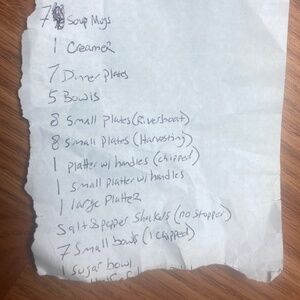 7 Soup Mugs
1 Creamer
7 Dinner Plates
5 Bowls
8 Small Plates (Riverboat)
8 Small Plates (Harvesting)
1 platter w/ handles (chipped)
1 small platter w/ handles
1 large Platter
Salt & pepper Shakers (no stopper)
7 Small bowls (1 chipped)
1 sugar bowl